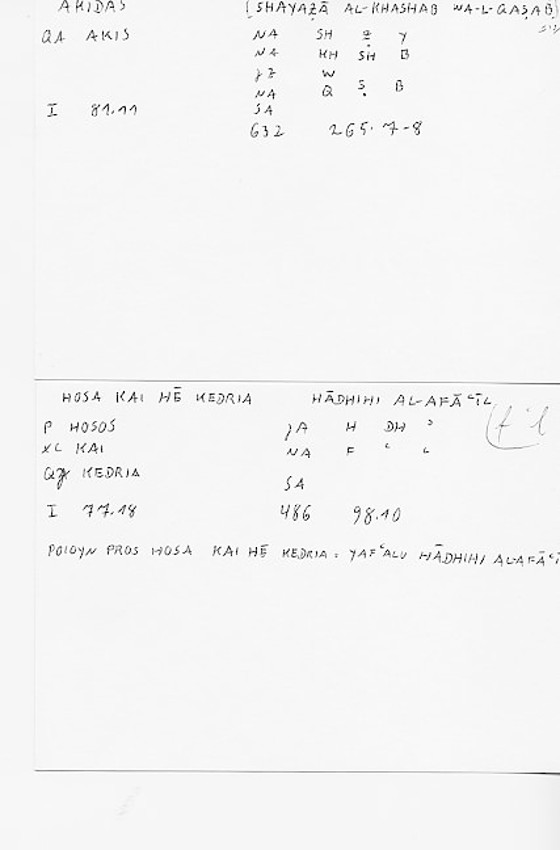 AKIDAS [SHAYAẒĀ AL-KHASHAB WA-L-QAṢAB]
QA AKIS NA SH Ẓ Y
NA KH SH B
W
NA Q Ṣ B
I 81.11 SA
632 265.7-8
HOSA KAI HĒ KEDRIA HĀDHIHI AL-AFĀʿĪL
P HOSOS JA H DH ʾ
XC KAI NA F ʿ L
KEDRIA SA
I 77.18 486 98.10
POIOYN PROS HOSA KAI HĒ KEDRIA = YAFʿALU HĀDHIHI AL-AFĀʿĪ